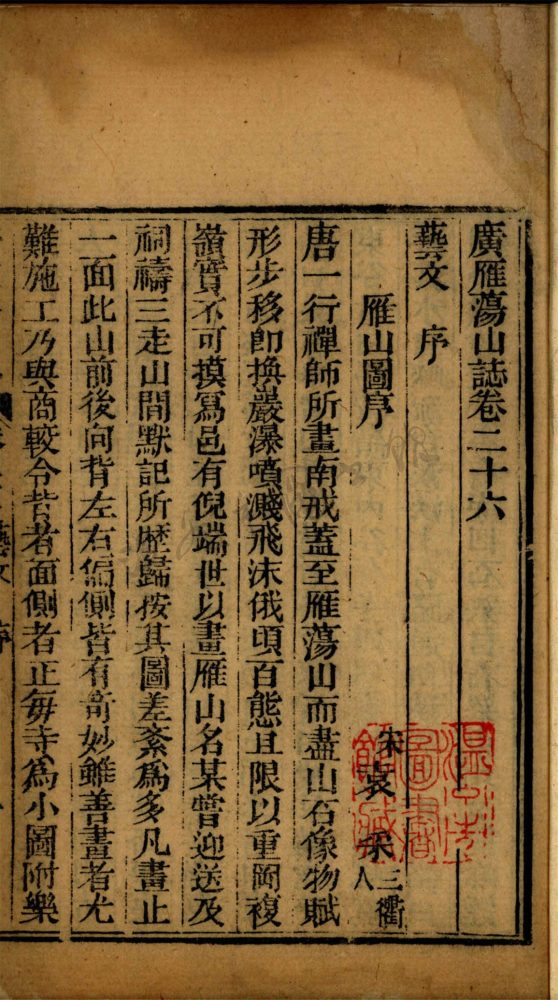 廣雁蕩山誌卷二十六
藝文 序
雁山圖序
宋袁采三衢人
唐一行禪師所畫南戒蓋至雁蕩山而盡山石像物賦
形步移卽換巖瀑噴濺飛沫俄頃百態且限以重岡複
嶺實不可摸寫邑有倪端世以畫雁山名某嘗迎送及
祠禱三走山間默記所歷歸按其圖差紊爲多凡畫止
一面此山前後向背左右偏側皆有奇妙雖善畫者尤
難施工乃與商較令背者面側者正每寺爲小圖附樂
藝文 序